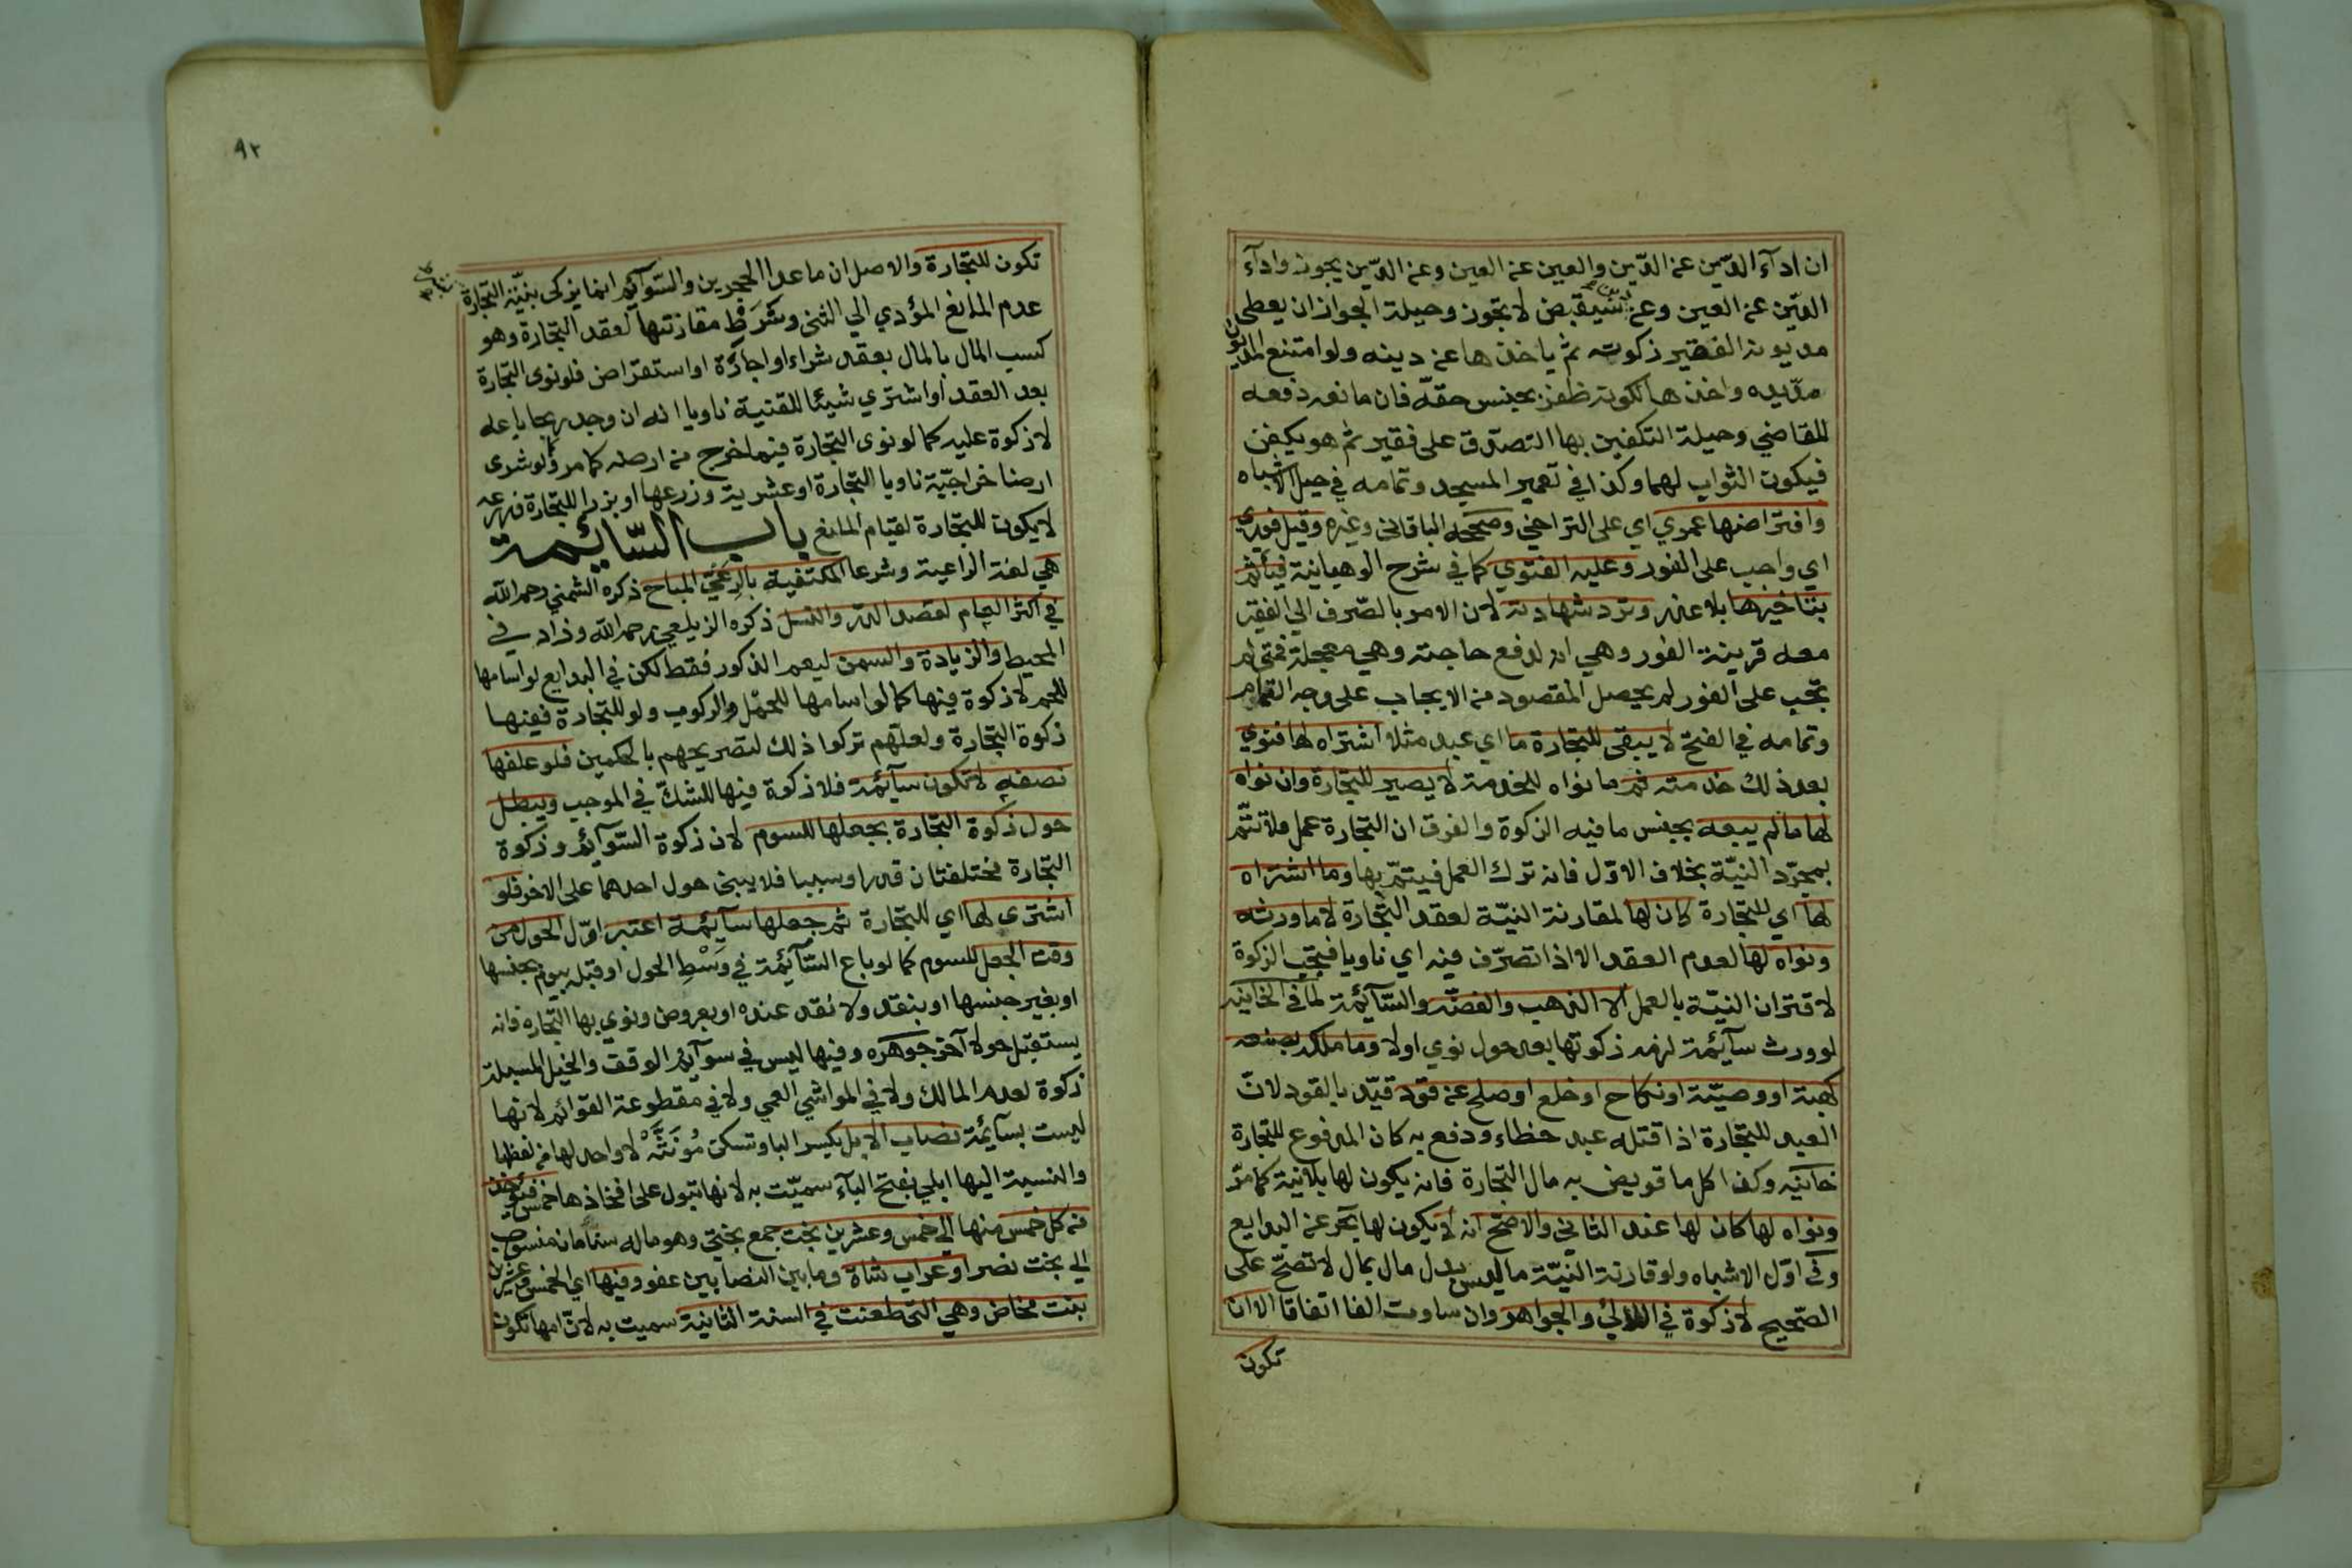 ان ادآء الدّين عن الدّين والعين عن العين وعن الدّين يجوز وادآء
الدّين عن العين وعن دين سيقبض لا يجوز وحيلة الجواز ان يعطى
مديونه الفقير زكوته ثم ياخذها عن دينه ولو امتنع المديون
مدّ يده واخذها لكونه ظفر بجنس حقّه فان مانعه رفعه
للقاضي وحيلة التكفين بها التصدّق على فقير ثم هو يكفن
فيكون الثواب لهما وكذا في تعمير المسجد وتمامه في حيل الاشباه
وافتراضها عمري اي على التراخي وصححه الباقاني وغيره وقيل فوري
اي واجب على الفور وعليه الفتوى كما في شرح الوهبانية فيأثم
بتاخيرها بلا عذر وترد شهادته لان الامر بالصّرف الي الفقير
معه قرينة الفور وهي انه لدفع حاجته وهي معجلة فمتى لم
تجب على الفور لم يحصل المقصود من الايجاب على وجه التمام
وتمامه في الفتح لا يبقى للتجارة ما اي عبد مثلا اشتراه لها فنوي
بعد ذلك خدمته ثم ما نواه للخدمة لا يصير للتجارة وان نواه
لها ما لم يبعه بجنس ما فيه الزكوة والفرق ان التجارة عمل فلا تتمّ
بمجرّد النيّة بخلاف الاوّل فانه ترك العمل فيتمّ بها وما اشتراه
لها اي للتجارة كان لها لمقارنة النيّة لعقد التجارة لا ما ورثه
ونواه لها لعدم العقد الا اذا تصرّف فيه اي ناويا فتجب الزكوة
لاقتران النيّة بالعمل الا الذهب والفضّه والسّآئمة لما في الخانيه
لو ورث سآئمة لزمه زكوتها بعد حول نوي اولا وما ملكه بصنعه
كهبة او وصيّة او نكاح او خلع او صلح عن قود قيّد بالقود لان
العبد للتجارة اذا قتله عبد خطاء ودفع به كان المدفوع للتجارة
خانيه وكذا كل ما قويض به مال التجارة فانه يكون لها بلا نية كما مرّ
ونواه لها كان لها عند الثاني والاصح انه لا يكون لها بحر عن البدايع
وفي اوّل الاشباه ولو قارنة النيّة ما ليس بدل مال بمال لا تصحّ على
الصّحيح لا زكوة في اللآلئ والجواهر وان ساوت الفا اتفاقا الا ان
تكون
٩٢
تكون للتجارة والاصل ان ما عدا الحجرين والسّوآئم انما يزكى بنيّة التجارة
عدم المانع المؤدي الي الثنى وشَرَط مقارنتها لعقد التجارة وهو
كسب المال بالمال بعقد شراء او اجارة او استقراض فلو نوى التجارة
بعد العقد او اشتري شيئا للقنية ناويا انه ان وجد ربحا باعه
لا زكوة عليه كما لو نوى التجارة فيما خرج من ارضه كما مر ولو شرى
ارضا خراجيّة ناويا التجارة او عشرية وزرعها او بزرا للتجارة وزرعه
لا يكون للتجارة لقيام المانغ باب السّائمة
هي لغة الراعية وشرعا المكتفية بالرِعْي المباح ذكره الشمني رحمه الله
في اكثر العام لقصد الدّر والنسل ذكره الزيلعي رحمه الله وزاد في
المحيط والزيادة والسمن ليعم الذكور فقط لكن في البدايع لو اسامها
للحم لا زكوة فيها كما لو اسامها للحمل والركوب ولو للتجارة ففيها
زكوة التجارة ولعلّهم تركوا ذلك لتصريحهم بالحكمين فلو علفها
نصفه لا تكون سآئمة فلا زكوة فيها للشكّ في الموجب ويبطل
حول زكوة التجارة بجعلها للسوم لان زكوة السّوآئم وزكوة
التجارة مختلفتان قدرا وسببا فلا يبنى حول احدهما على الاخر فلو
اشترى لها اي للتجارة ثم جعلها سآئمة اعتبر اوّل الحول من
وقت الجعل للسوم كما لو باع السّآئمة في وَسْطِ الحول او قبله بيوم بجنسها
او بغير جنسها او بنقد ولا نقد عنده او بعروض ونوي بها التجاره فانه
يستقبل حولا آخر جوهره وفيها ليس في سوآئم الوقف والخيل المسبلة
زكوة لعدم المالك ولا في المواشي العمي ولا في مقطوعة القوائم لانها
ليست بسآئمة نصاب الابل بكسر البا وتسكن مُؤنثّة لا واحد لها من لفظها
والنسبة اليها ابلي بفتح البآء سميّت به لانها تبول على افخاذها خمس فيؤخذ
من كل خمس منها الي خمس وعشرين بخت جمع بختي وهو ماله سنامان منسوب
الي بخت نصر او عراب شاة وما بين النصابين عفو وفيها اي الخمس وعشرين
بنت مخاض وهي التى طعنت في السنة الثانية سميت به لانّ امها تكون